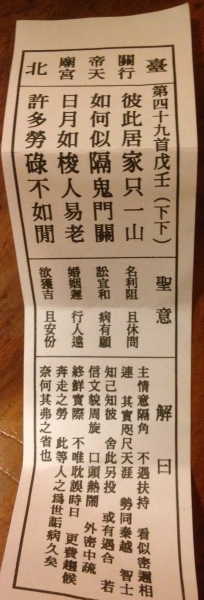 臺北
關帝廟
行天宮
第四十九首戊壬(下下)
彼此居家只一山
如何似隔鬼門關
日月如梭人易老
許多勞碌不如閒
聖意
名利阻 且休問
訟宜和 病有願
婚姻遲 行人遠
欲獲吉 且安份
解曰
主情意隔角 不遇扶持 看似密邇相
連 其實咫尺天涯 勢同秦越 智士
知己知彼 舍此另投 或有遇合 若
信文貌周旋 口頭熱鬧 外密中疏
終鮮實際 不唯耽誤時日 更費趨候
奔走之勞 此等人之為世詬病久矣
奈何其弗之省也